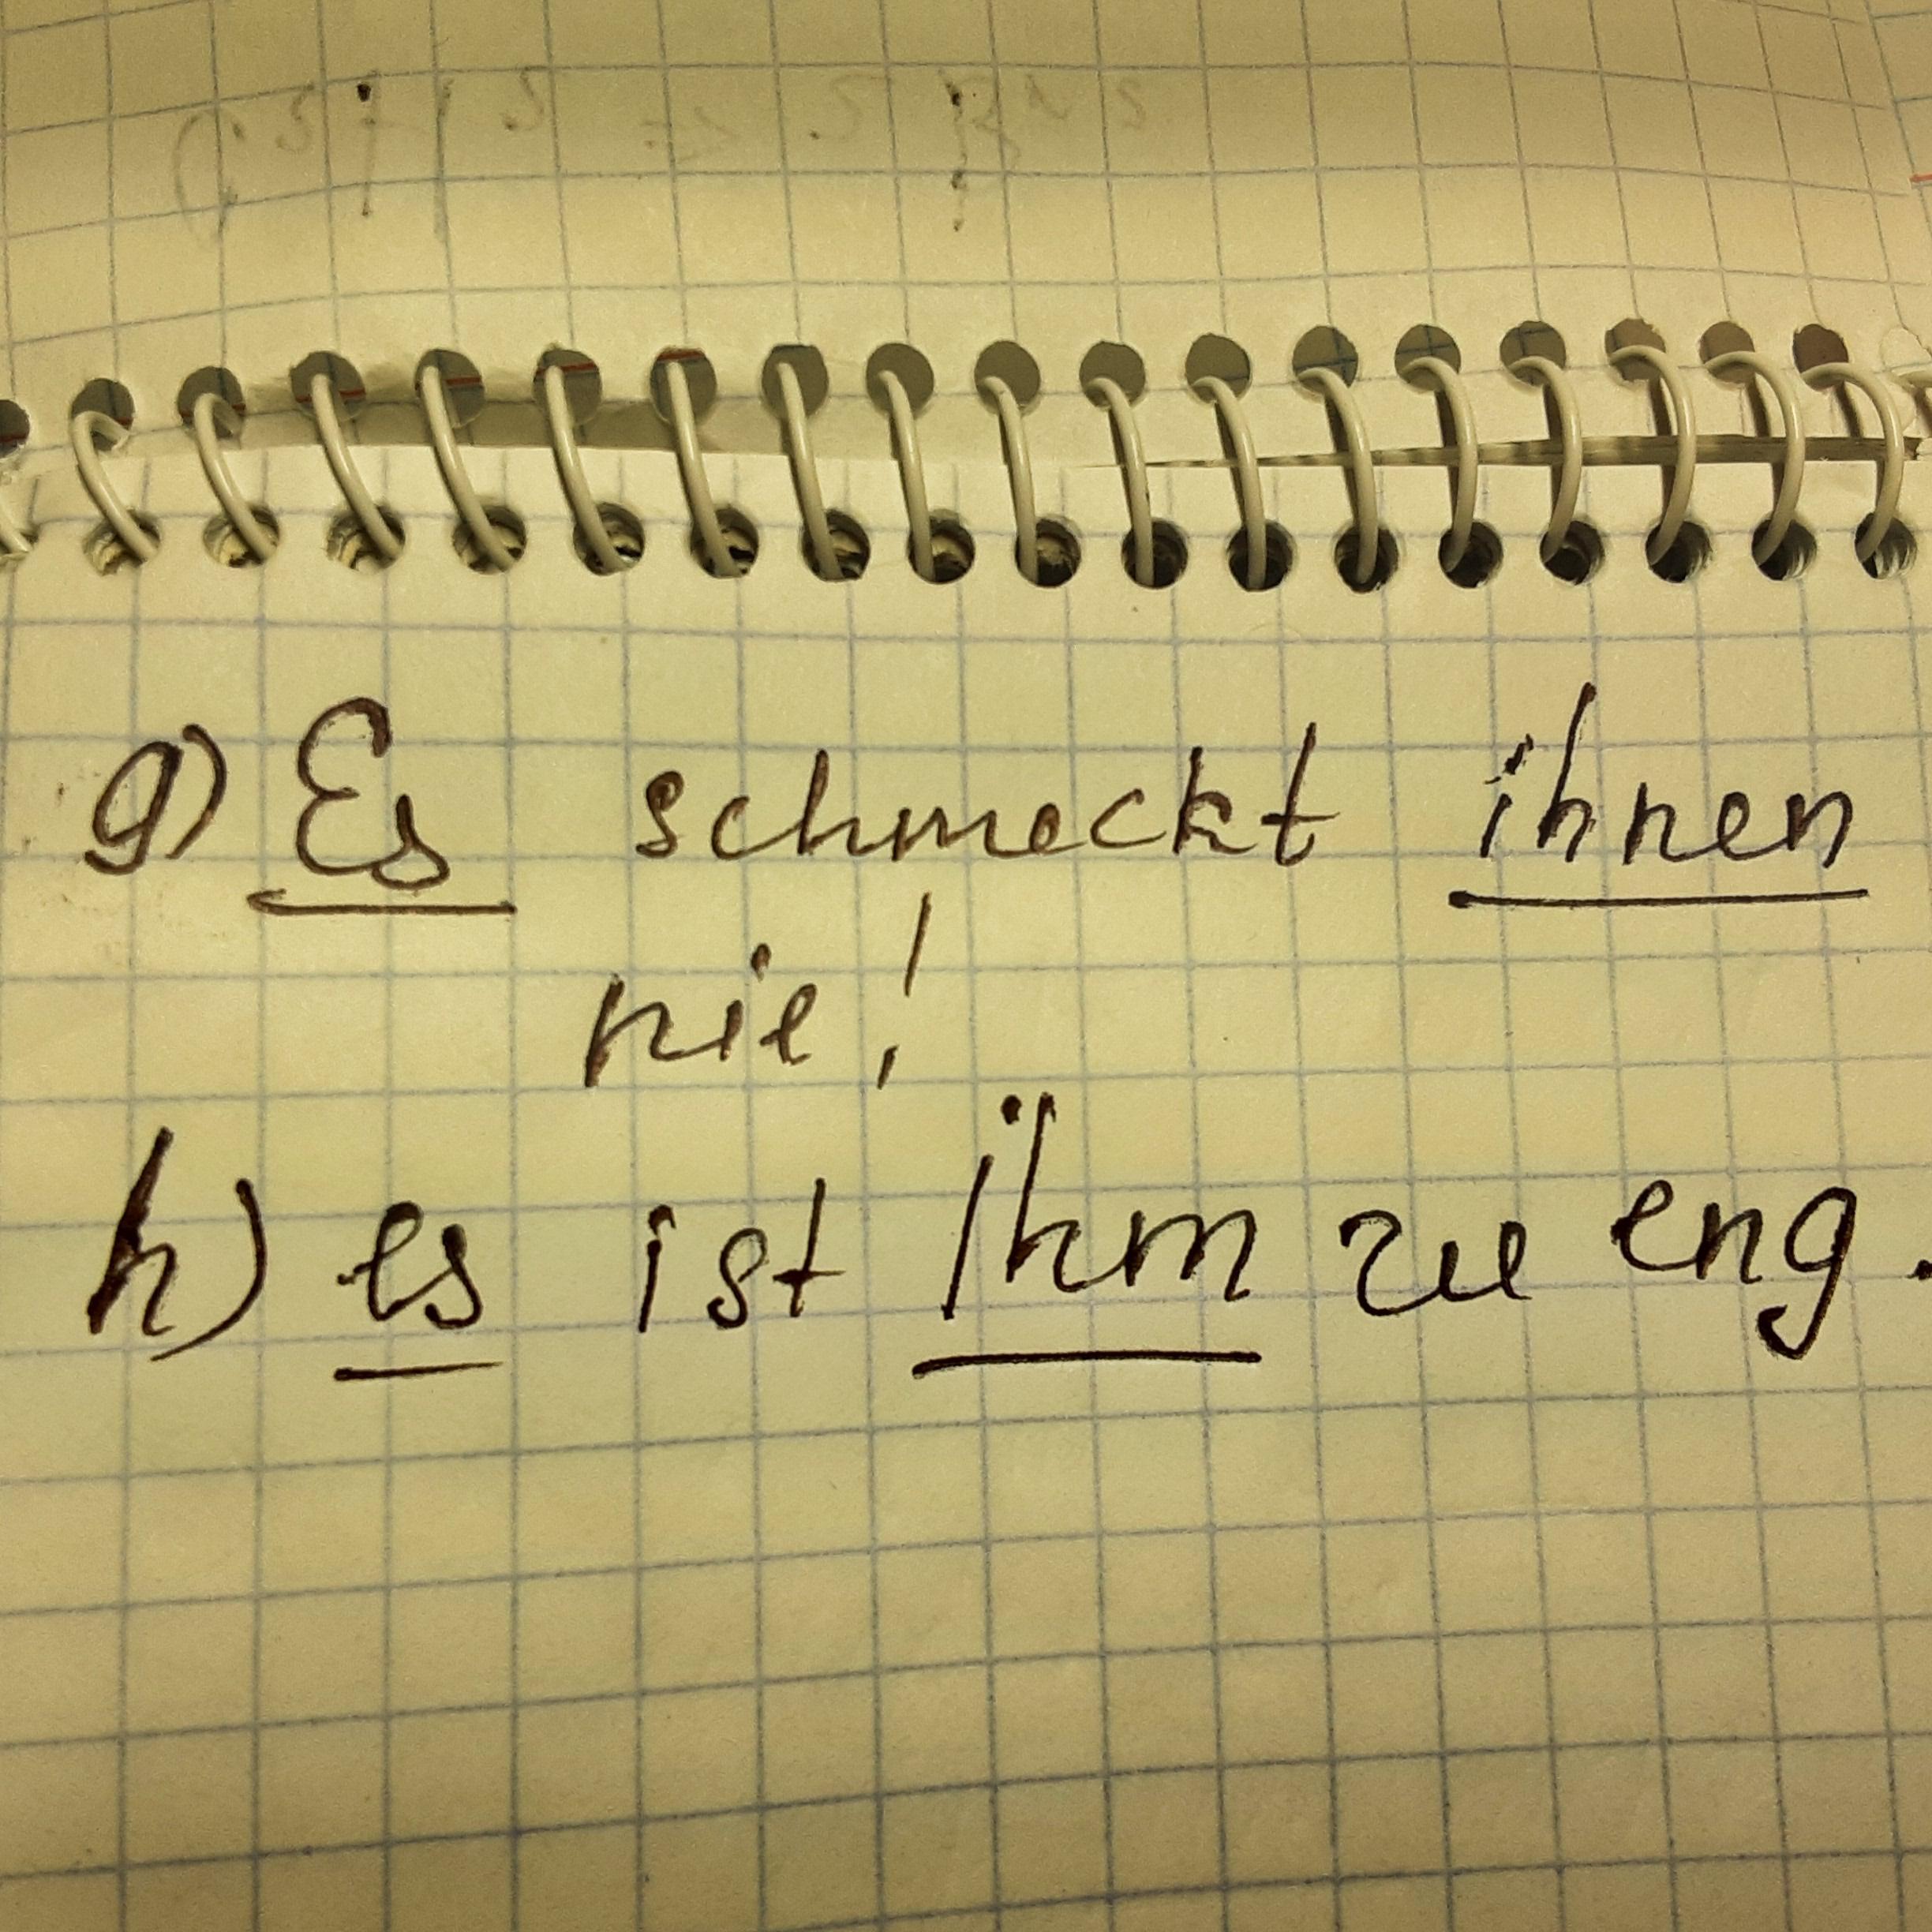 g) Es schmeckt ihnen
nie!
h) es ist ihm zu eng.